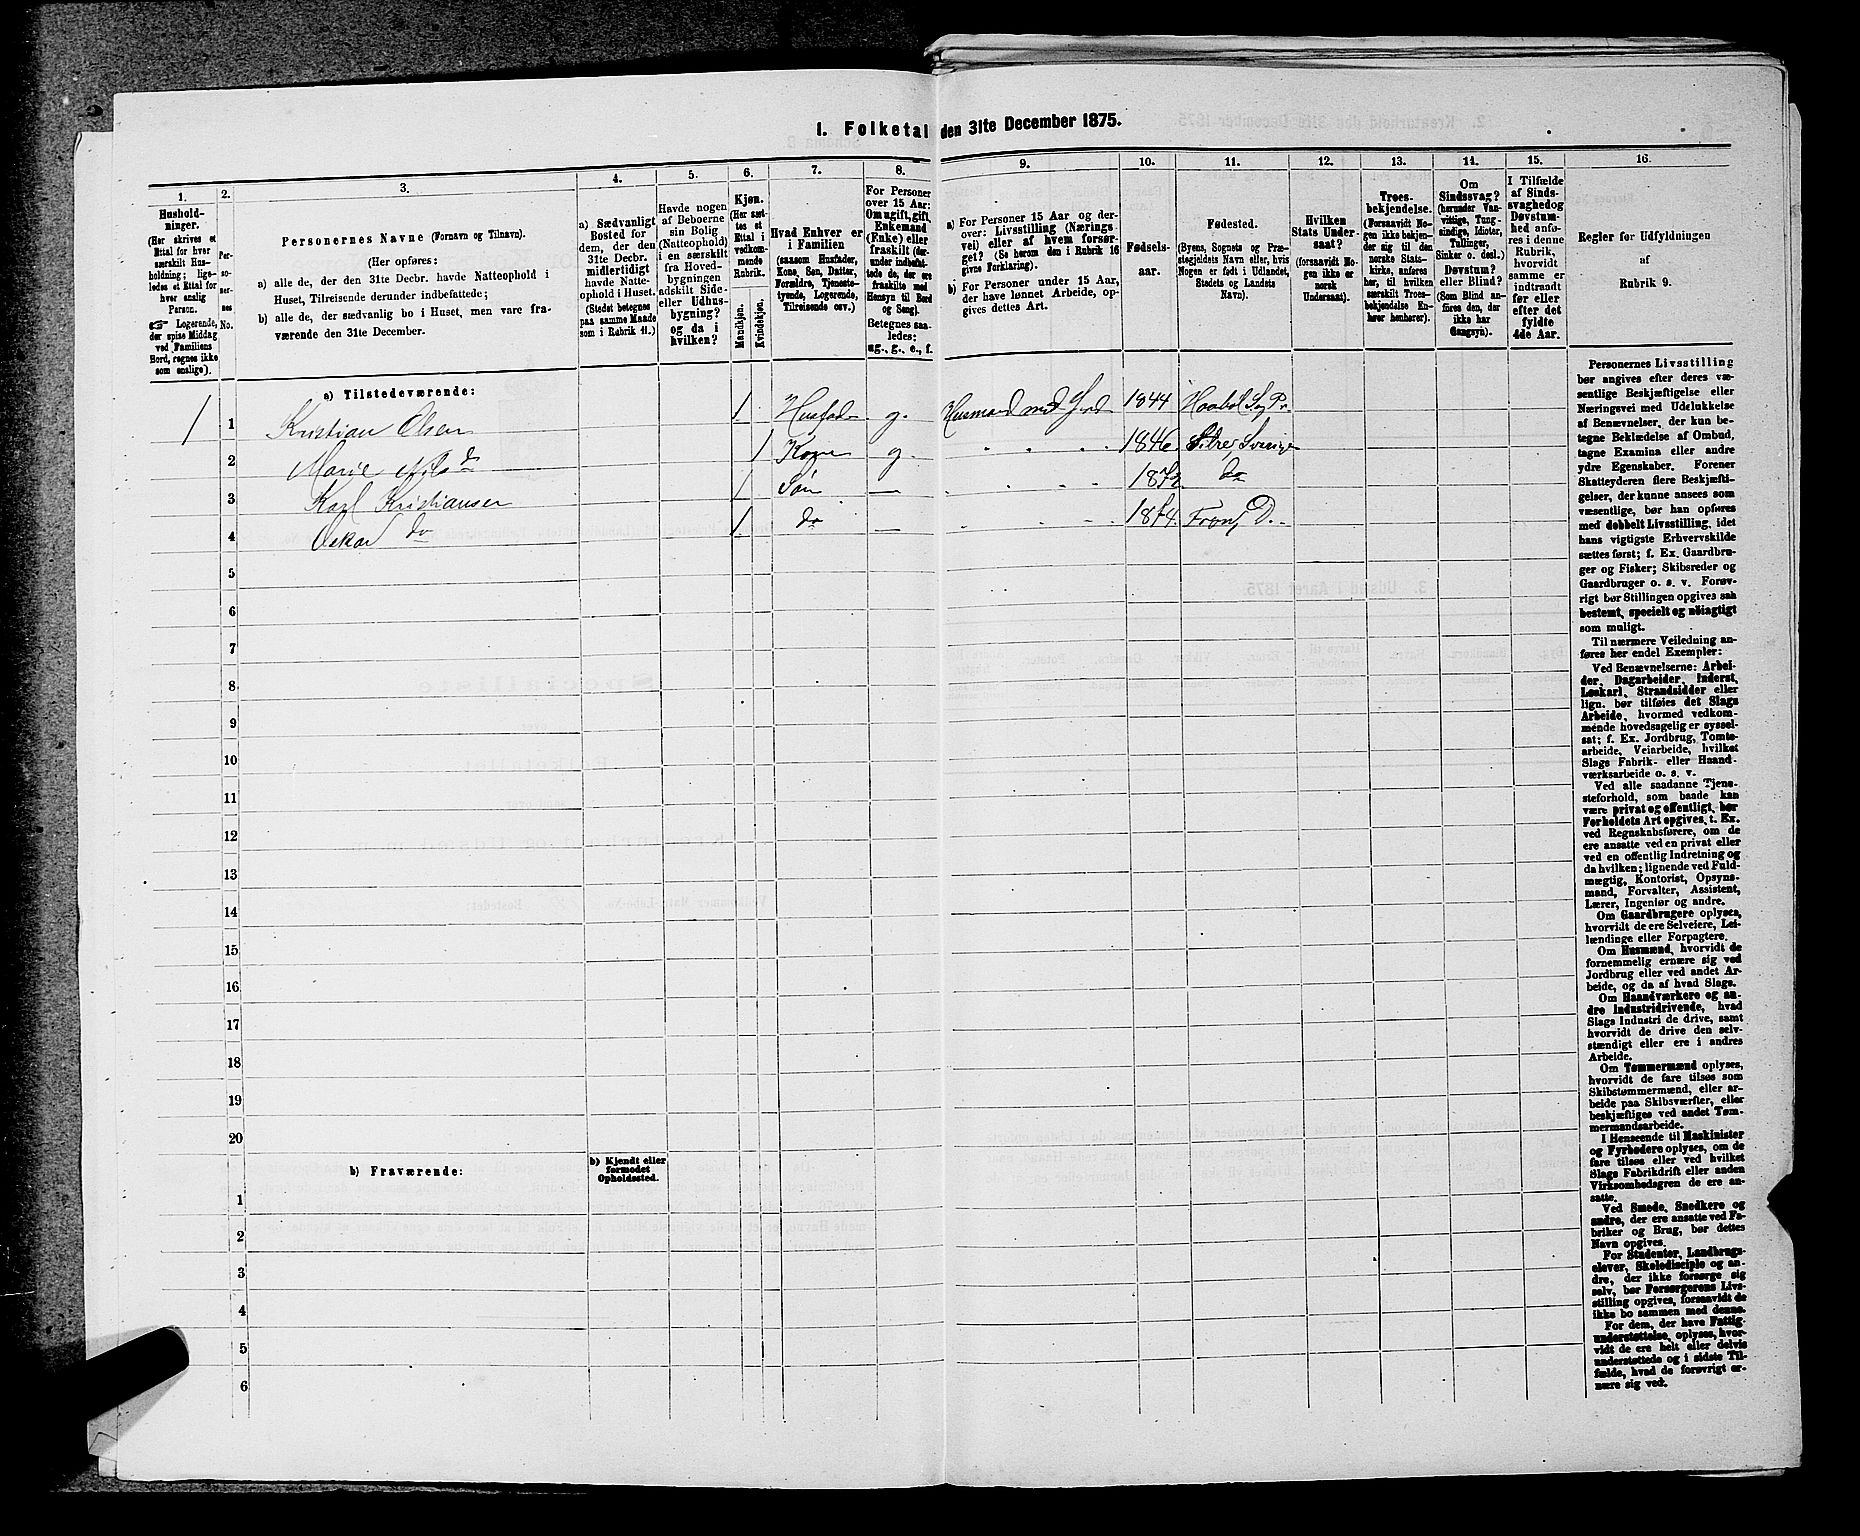 1. Folketal den 31te December 1875.
1.
Hushold-
ninger.
(Her skrives et
Ettal for hver
særskilt Hus-
holdning; lige-
ledes et Ettal for
hver enslig
Person.
☞ Logerende,
der spise Middag
ved Familiens
Bord, regnes ikke
som enslige).
2.
Per-
so-
ner-
nes
No.
3.
Personernes Navne (Fornavn og Tilnavn).
(Her opføres:
a) alle de, der den 31te Decbr. havde Natteophold i
Huset, Tilreisende derunder indbefattede;
b) alle de, der sædvanlig bo i Huset, men vare fra-
værende den 31te December.
4.
a) Sædvanligt
Bosted for
dem, der den
31te Decbr.
midlertidigt
havde Natte-
ophold i Huset.
(Stedet betegnes
paa samme Maade
som i Rubrik 11.)
5.
Havde nogen
af Beboerne
sin Bolig
(Natteophold)
i en særskilt
fra Hoved-
bygningen
adskilt Side-
eller Udhus-
bygning?
og da i
hvilken?
6.
Kjøn.
(Her sæt-
tes et
Ettal i
vedkom-
mende
Rubrik.
Mandkjøn.
Kvindekjøn.
7.
Hvad Enhver er
i Familien
(saasom Husfader,
Kone, Søn, Datter,
Forældre, Tjeneste-
tyende, Logerende,
Tilreisende osv.)
8.
For Personer
over 15 Aar:
Om ugift, gift,
Enkemand
(Enke) eller
fraskilt (der-
under indbefat-
tede de, der ere
fraskilte med
Hensyn til Bord
og Seng).
Betegnes saa-
ledes:
ug., g., e., f.
9.
a) For Personer 15 Aar og der-
over: Livsstilling (Nærings-
vei) eller af hvem forsør-
get? (Se herom den i Rubrik 16
givne Forklaring).
b) For Personer under 15 Aar,
der have lønnet Arbeide, op-
gives dettes Art.
10.
Fødsels-
aar.
11.
Fødested.
(Byens, Sognets og Præ-
stegjeldets Navn eller, hvis
Nogen er født i Udlandet,
Stedets og Landets
Navn).
12.
Hvilken
Stats Under-
saat?
(forsaavidt No-
gen ikke er
norsk
Undersaat).
13.
Troes-
bekjendelse.
(Forsaavidt No-
gen ikke bekjen-
der sig til den
norske Stats-
kirke, anføres
her, til hvilken
særskilt Troes-
bekjendelse En-
hver henhører).
14.
Om
Sindssvag?
(herunder Van-
vittige, Tung-
sindige, Idioter,
Tullinger,
Sinker o. desl.)
Døvstum?
eller Blind?
(Som Blind an-
føres den, der
ikke har
Gangsyn).
15.
I Tilfælde
af Sinds-
svaghed og
Døvstum-
hed anfø-
res i denne
Rubrik,
hvorvidt
samme er
indtraadt
før eller
efter det
fyldte
4de Aar.
16.
Regler for Udfyldningen
af
Rubrik 9.
a) Tilstedeværende:
1 1 Kristian Olsen 1 Husfader g. Husmand med Jord 1844
2 Marie Nilsd 1 Kone g. " " " 1846 Sverige
3 Karl Kristiansen 1 Søn — " " " 1872 do
4 Oskar do 1 do — " " " 1874.
5
6
7
8
9
10
11
12
13
14
15
16
17
18
19
20
b) Fraværende:
b) Kjendt eller
formodet
Opholdssted.
1
2
3
4
5
6
Personernes Livsstilling
bør angives efter deres væ-
sentlige Beskjæftigelse eller
Næringsvei med Udelukkelse
af Benævnelser, der kun be-
tegne Beklædelse af Ombud,
tagne Examina eller andre
ydre Egenskaber. Forener
Skatteyderen flere Beskjæfti-
gelser, der kunne ansees som
væsentlige, bør han opføres
med dobbelt Livsstilling, idet
hans vigtigste Erhvervskilde
sættes først; f. Ex. Gaardbru-
ger og Fisker; Skibsreder og
Gaardbruger o. s. v. Forøv-
rigt bør Stillingen opgives saa
bestemt, specielt og nøiagtigt
som muligt.
Til nærmere Veiledning an-
føres her endel Exempler:
Ved Benævnelserne: Arbei-
der, Dagarbeider, Inderst,
Løskarl, Strandsidder eller
lign. bør tilføies det Slags
Arbeide, hvormed vedkom-
mende hovedsagelig er syssel-
sat; f. Ex. Jordbrug, Tomte-
arbeide, Veiarbeide, hvilket
Slags Fabrik- eller Haand-
værksarbeide o. s. v.
Ved alle saadanne Tjene-
steforhold, som baade kan
være privat og offentligt, bør
Forholdets Art opgives, t. Ex.
ved Regnskabsførere, om de
ere ansatte ved en privat eller
ved en offentlig Indretning og
da hvilken; lignende ved Fuld-
mægtig, Kontorist, Opsyns-
mand, Forvalter, Assistent,
Lærer, Ingeniør og andre.
Om Gaardbrugere oplyses,
hvorvidt de ere Selveiere, Lei-
lændinge eller Forpagtere.
Om Husmænd, hvorvidt de
fornemmelig ernære sig ved
Jordbrug eller ved andet Ar-
beide, og da af hvad Slags.
Om Haandværkere og an-
dre Industridrivende, hvad
Slags Industri de drive, samt
hvorvidt de drive den selv-
stændigt eller ere i andres
Arbeide.
Om Tømmermænd oplyses,
hvorvidt de fare tilsøs som
Skibstømmermænd, eller ar-
beide paa Skibsværfter, eller
beskjæftiges ved andet Tøm-
mermandsarbeide.
I Henseende til Maskinister
og Fyrbødere oplyses, om de
fare tilsøs eller ved hvilket
Slags Fabrikdrift eller anden
Virksomhedsgren de ere an-
satte.
Ved Smede, Snedkere og
andre, der ere ansatte ved Fa-
briker og Brug, bør dettes
Navn opgives.
For Studenter, Landbrugs-
elever, Skoledisciple og an-
dre, der ikke forsørge sig
selv, bør Forsørgerens Livs-
stilling opgives, forsaavidt de
ikke bo sammen med denne.
For dem, der have Fattig-
understøttelse, oplyses, hvor-
vidt de ere helt eller delvis
understøttede og i sidste Til-
fælde, hvad de forøvrigt er-
nære sig ved.